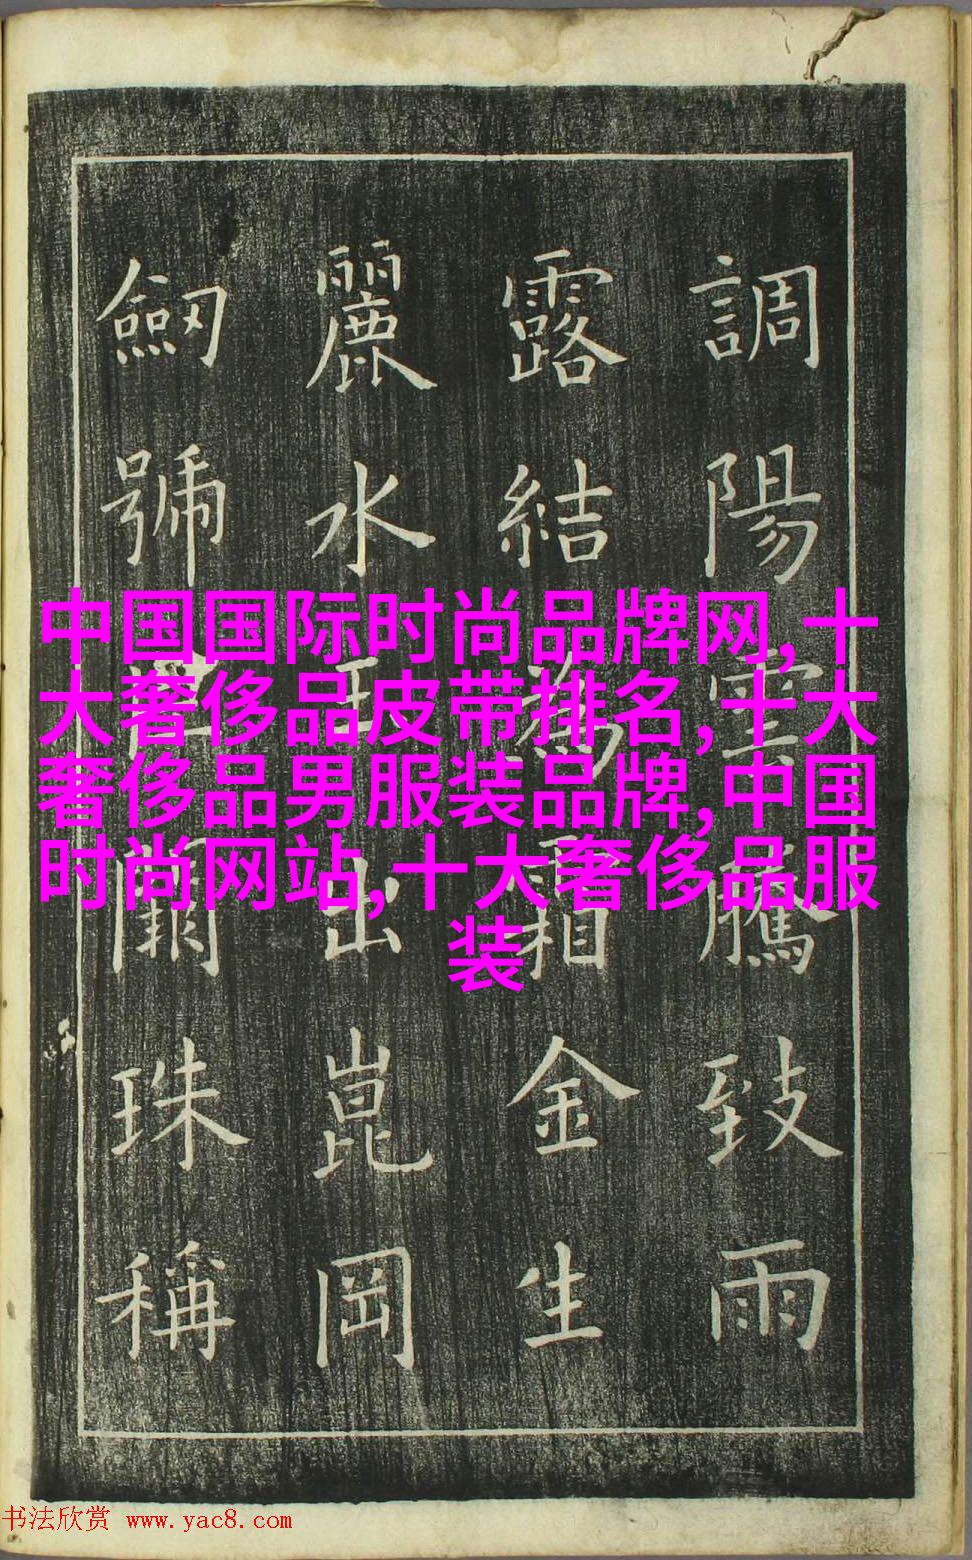 調陽雲騰致雨
露結為霜金生
麗水玉出崑岡
劒號闕珠稱
中国国际时尚品牌网,十
大奢侈品皮带排名,十大
奢侈品男服装品牌,中国
时尚网站,十大奢侈品服
装
书法欣赏 www.yac8.com